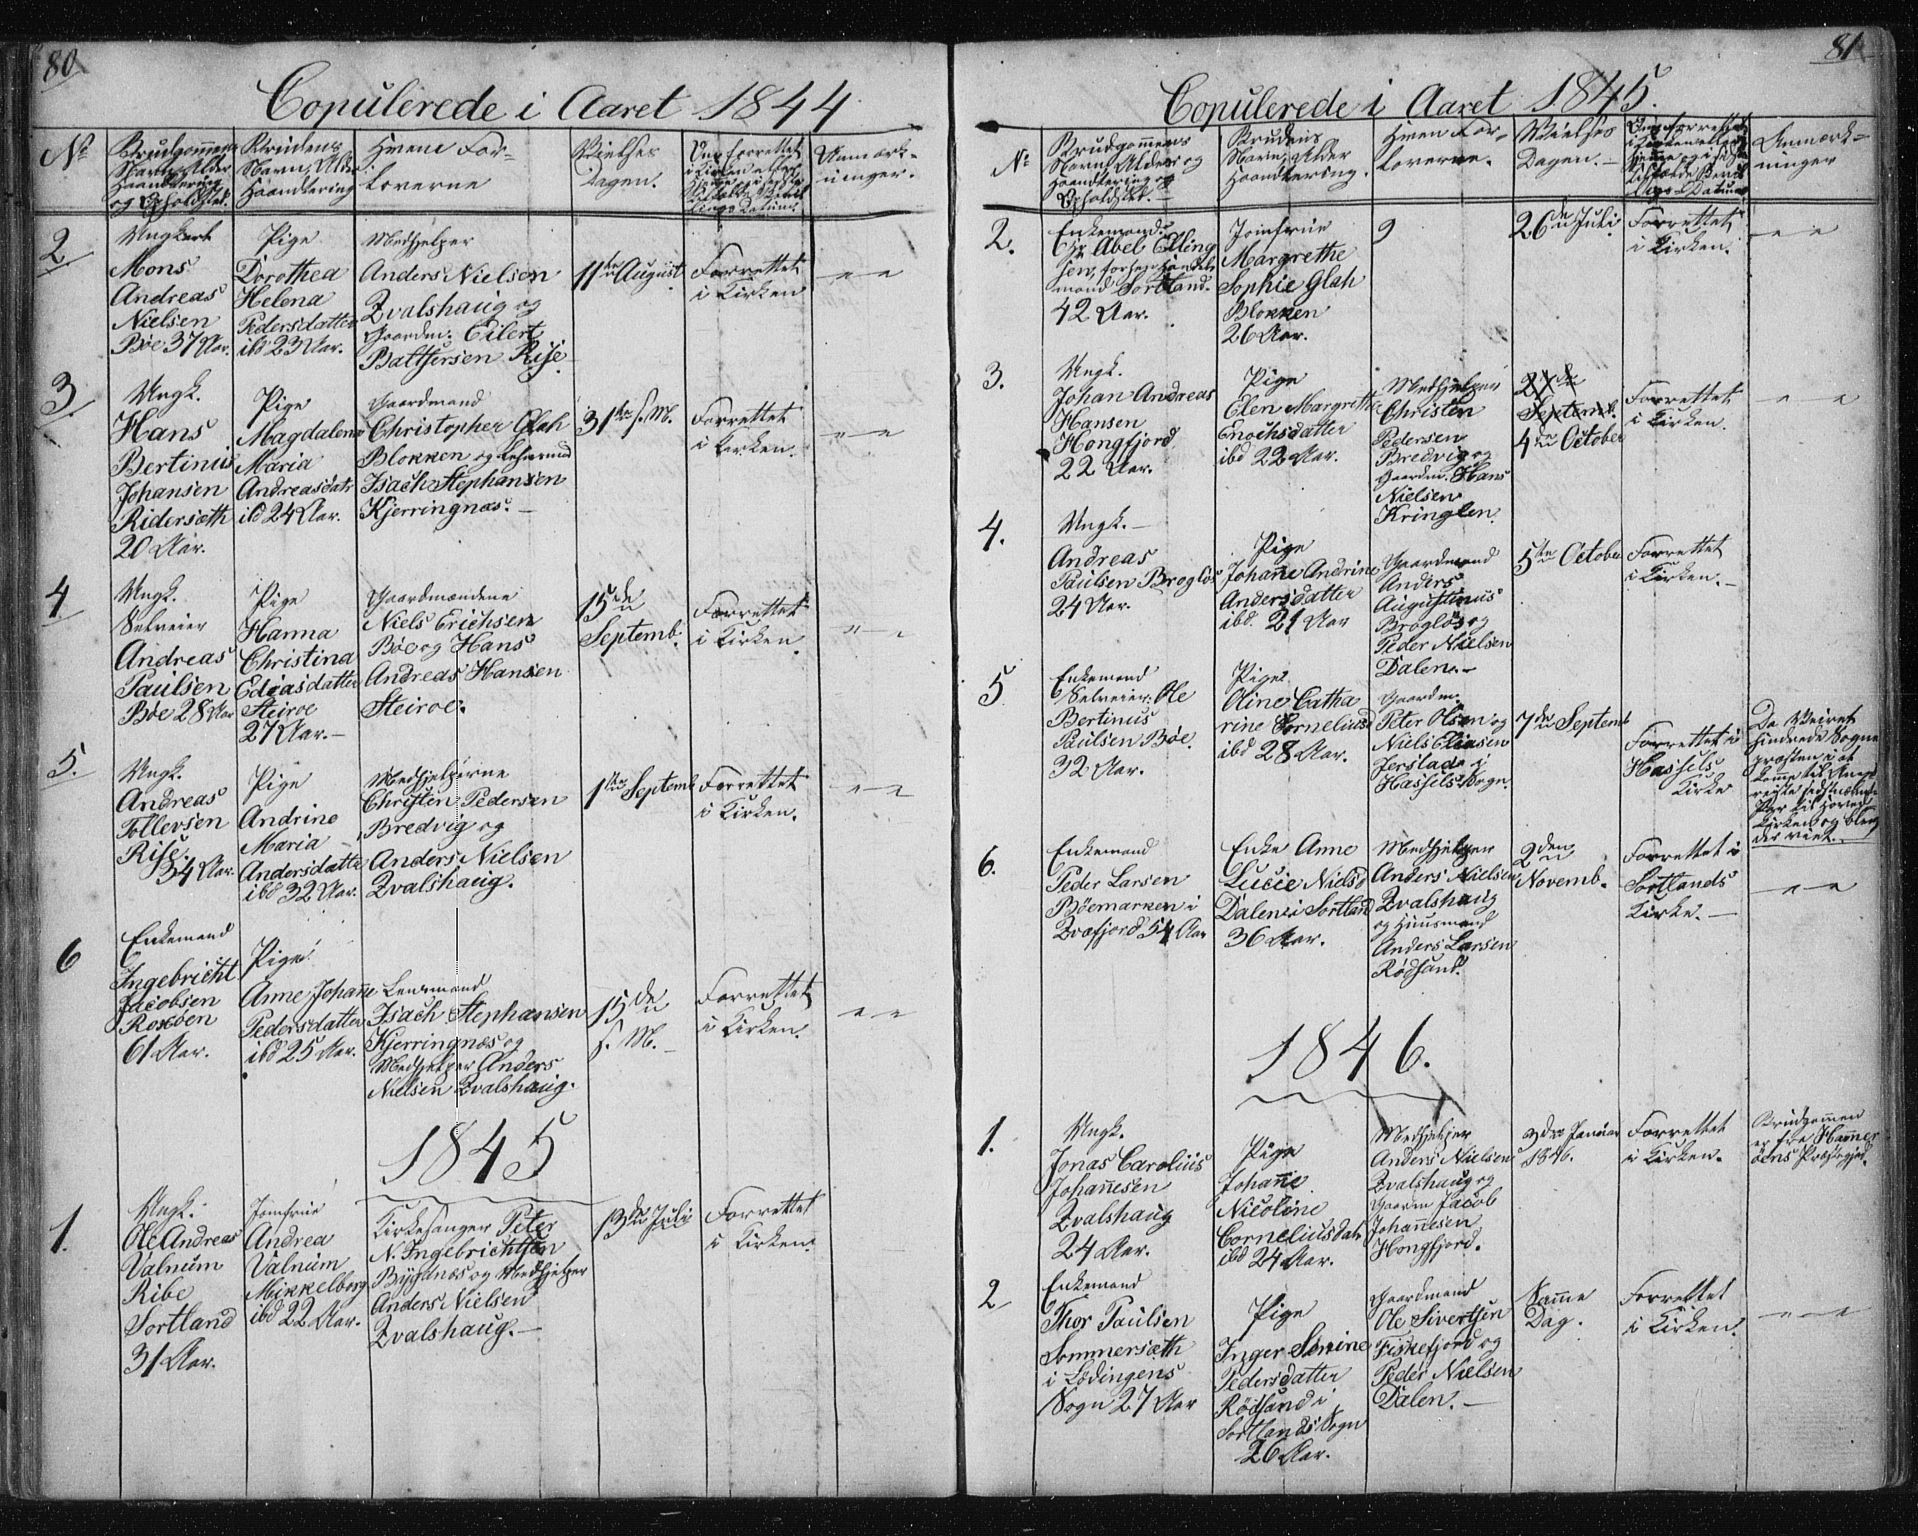 80
Copulerede i Aaret 1844
No
Brudgommens
Navn, Alder
Haandtering
og Opholdsted.
Brudens
Navn, Alder
Haandtering
Hvem For-
loverne
Vielses
Dagen.
Om forrettet
i Kirken eller
Anmærk-
ninger.
2
Ungkarl
Mons
Andreas
Nielsen
Bøe 37 Aar.
Pige
Dorothea
Helena
Pedersdatter
ibd 23 Aar.
Medhjelper
Anders Nielsen
Kvalshaug og
Gaardm. Eilert
Balthersen Rise
11te August
Forrettet
i Kirken
" — "
3
Ungk.
Hans
Bertinus
Johansen
Ridersæth
20 Aar.
Pige
Magdalena
Maria
Andreasdatr
ibd 24 Aar.
Gaardmand
Christopher Glah
Blokken og Lensmand
Isach Stephansen
Kjerringnæs. —
31te s. M.
Forrettet
i Kirken.
" — "
4
Ungk.
Selveier
Andreas
Paulsen
Bøe 28 Aar
Pige
Hanna
Christina
Ediasdatter
Steiroe
27 Aar. —
Gaardmændene
Niels Erichsen
Bøe og Hans
Andreas Hansen
Steiroe.
15de
Septemb.
Forrettet
i Kirken.
" — "
5.
Ungk.
Andreas
Tollevsen
Rise
34 Aar.
Pige
Andrine
Maria
Andersdatter
ibd 32 Aar.
Medhjelperne
Christen Pedersen
Bredvig og
Anders Nielsen
Kvalshaug.
1ste Septemb
Forrettet
i Kirken.
" — "
6
Enkemand
Ingebricht
Jacobsen
Roksøen
61 Aar.
Pige
Anne Johanne
Pedersdatter
ibd 25 Aar.
Lensmand
Isach Stephansen
Kjerringnæs og
Medhjelper Anders
Nielsen Kvalshaug.
15de
s. M.
Forrettet
i Kirken.
" — "
1845
1.
Ungk.
Ole Andreas
Valnum
Ribe
Sortland
31 Aar.
Jomfrue
Andrea
Valnum
Mikkelborg
ibd 22 Aar.
Kirkesanger Peter
N. Ingebrichtsen
Bygdnæs og Medhjelper
Anders Nielsen
Kvalshaug. —
13de Juli
Forrettet
i Kirken.
81
Copulerede i Aaret 1845.
No
Brudgommens
Navn, Alder og
Haandtering og
Opholdsted. —
Brudens
Navn, Alder
Haandtering.
Hvem For-
loverne.
Vielses
Dagen. —
Om forrettet
i Kirken eller
Anmærk-
ninger
2.
Enkemand
Hr Abel Elling
sen, forhen Handels
mand Sortland.
42 Aar.
Jomfrue
Margrethe
Sophie Glah
Blokken
26 Aar.
9
26de Juli
Forrettet
i Kirken.
" — "
3.
Ungk.
Johan Andreas
Hansen
Hongfjord
22 Aar.
Pige
Elen Margrethe
Enochsdatter
ibd 22 Aar.
Medhjelper
Christen
Pedersen
Bredvig og
Gaardm. Hans
Nielsen
Kringlen.
27de
Septemb.
4de October
Forrettet
i Kirken.
" — "
4.
Ungk. —
Andreas
Paulsen Brogløs
24 Aar.
Pige
Johanne Andrine
Andersdatter
ibd. 21 Aar
Gaardmand
Anders
Augustinus
Brogløs og
Peder Nielsen
Dalen. —
5te October
Forrettet
i Kirken. —
5
Enkemand
Selveier Ole
Bertinus
Paulsen Bøe.
32 Aar.
Pige
Oline Catha
rine Cornelius
ibd 28 Aar.
Gaardm.
Peter Olsen og
Niels Eliasen
Jerstad i
Hassels Sogn.
7de Septemb
Forrettet i
Hassels
Kirke
Da Veiret
hindrede Sogne
præsten i at
komme til Annex
reiste
Par til Hoved
Kirken og blev
der viet.
6.
Enkemand
Peder Larsen
Bøemarken i
Kvæfjord 54 Aar
Enke Anne
Lucie Nielsd
Dalen i Sortland
36 Aar.
Medhjelper
Anders Nielsen
Kvalshaug
og Huusmand
Anders Larsen
Rødsand.
2den
Novemb.
Forrettet i
Sortlands
Kirke. —
" — "
1846.
1.
Ungk.
Jonas Carolius
Johannesen
Kvalshaug
24 Aar.
Pige
Johanne
Nicoline
Corneliusdatr
ibd 24 Aar.
Medhjelper
Anders Nielsen
Kvalshaug og
Gaardm Jacob
Johannesen
Hongfjord.
3die Januar
1846.
Forrettet
i Kirken.
Brudgommen
er fra Hammer
øens Præstegjeld.
2
Enkemand
Thor Paulsen
Sommersæth
i Lødingens
Sogn 27 Aar
Pige
Inger Simine
Pedersdatter
Rødsand i
Sortlands Sogn
26 Aar.
Gaardmand
Ole Sivertsen
Fiskefjord og
Peder Nielsen
Dalen. —
Samme
Dag.
Forrettet
i Kirken.
" — "